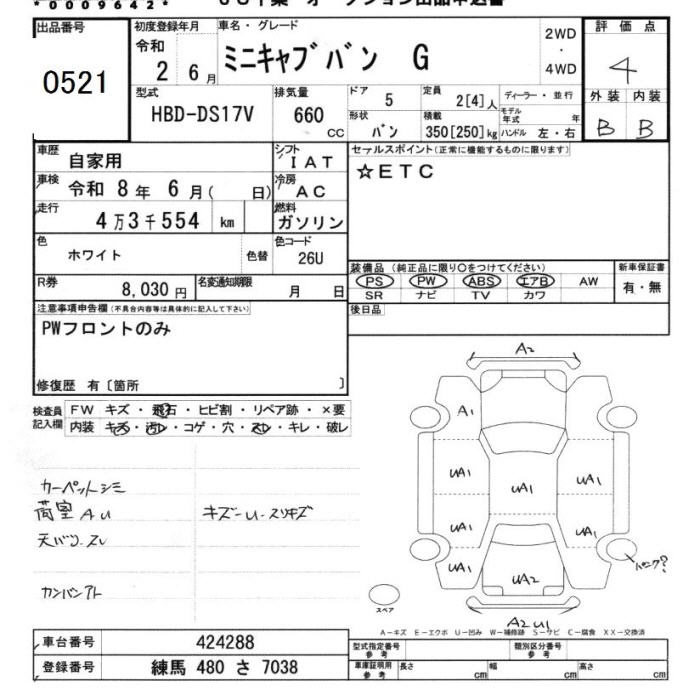 *0009642*
オークション出品申込書
出品番号
0521
初度登録年月
令和
2 6月
車名・グレード
ミニキャブバン G
2WD
・
4WD
評価点
4
型式
HBD-DS17V
排気量
660
cc
ドア
5
定員
2[4]人
ディーラー・並行
形状
バン
積載
350[250]kg
モデル年式
年
ハンドル 左・右
外装 内装
B B
車歴
自家用
シフト
IAT
セールスポイント(正常に機能するものに限ります)
☆ETC
車検
令和 8年 6月( 日)
冷房
AC
走行
4万3千554 km
燃料
ガソリン
色
ホワイト
色替
色コード
26U
R券
8,030円
名変通知期限
月 日
装備品(純正品に限り○をつけてください)
PS PW ABS エアB AW
SR ナビ TV カワ
新車保証書
有・無
注意事項申告欄(不具合内容等は具体的に記入して下さい)
後日品
PWフロントのみ
修復歴 有〔箇所 〕
検査員
記入欄
FW キズ・飛石・ヒビ割・リペア跡・×要
内装 キズ・汚レ・コゲ・穴・スレ・キレ・破レ
カーペットシミ
荷室AU キズ-U-スリキズ
天バリ-スレ
カンバンアト
A2
A1
UA1
UA1
UA1
UA1
UA1
UA1
UA1
UA2
パンク?
スペア
A2U1
A-キズ E-エクボ U-凹み W-補修跡 S-サビ C-腐食 XX-交換済
車台番号
424288
登録番号
練馬 480 さ 7038
型式指定番号
参考
類別区分番号
参考
車庫証明用
参考
長さ cm 幅 cm 高さ cm